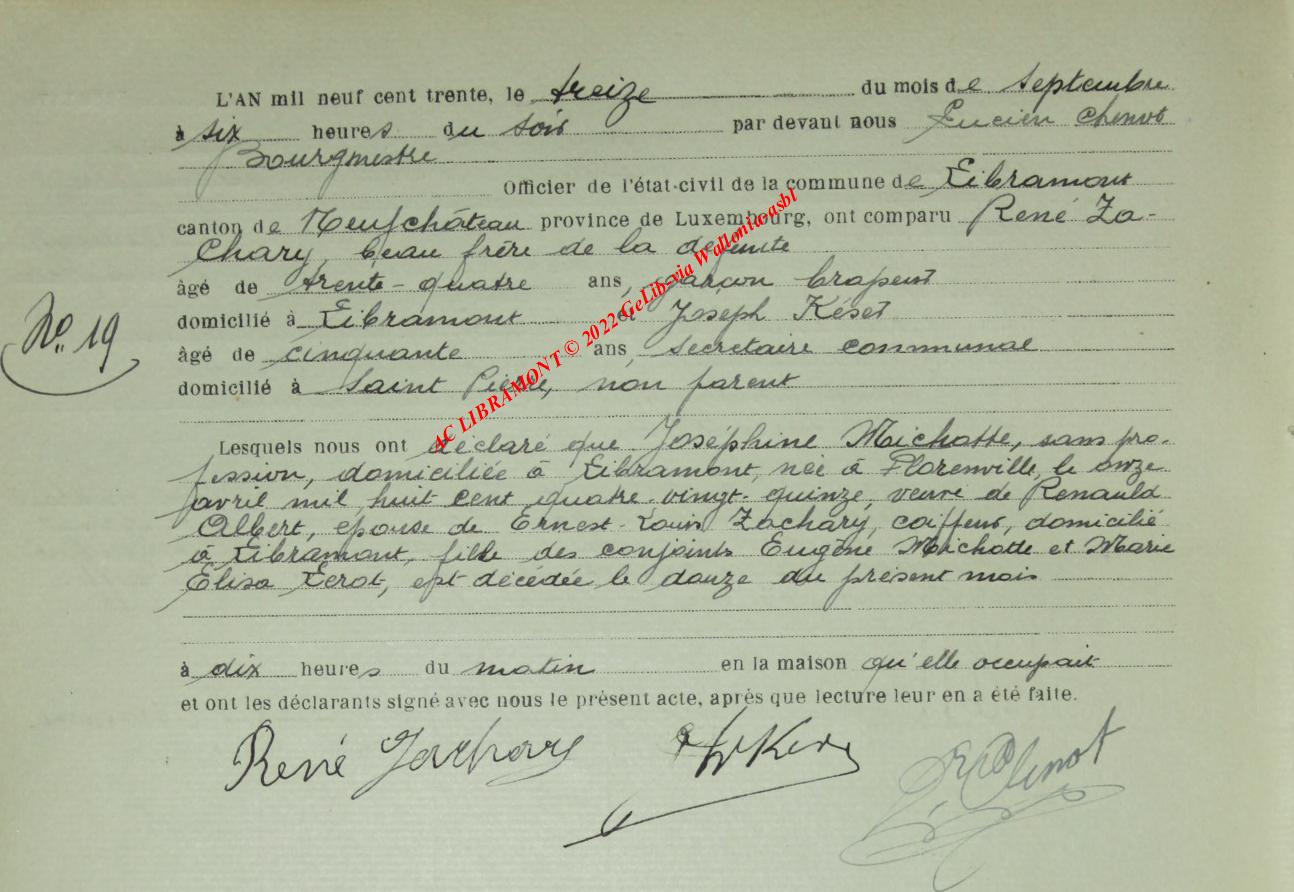 L'AN mil neuf cent trente, le treize du mois de septembre
à six heures du soir par devant nous Lucien Chenot
Bourgmestre
Officier de l'état-civil de la commune de Libramont
canton de Neufchâteau province de Luxembourg, ont comparu René Za-
chary, beau frère de la défunte
âgé de trente-quatre ans, garçon drapeur
domicilié à Libramont et Joseph Késer
N°. 19
âgé de cinquante ans, secrétaire communal
domicilié à Saint Pierre, non parent
Lesquels nous ont déclaré que Joséphine Michotte, sans pro-
fession, domiciliée à Libramont, née à Florenville, le onze
avril mil huit cent quatre-vingt-quinze, veuve de Renauld
Albert, épouse de Ernest-Louis Zachary, coiffeur, domicilié
à Libramont, fille des conjoints Eugène Michotte et Marie
Elisa Lerot, est décédée le douze du présent mois
à dix heures du matin en la maison qu'elle occupait
et ont les déclarants signé avec nous le présent acte, après que lecture leur en a été faite.
René Zachary
AC LIBRAMONT © 2022 GeLib-via Wallonia-asbl